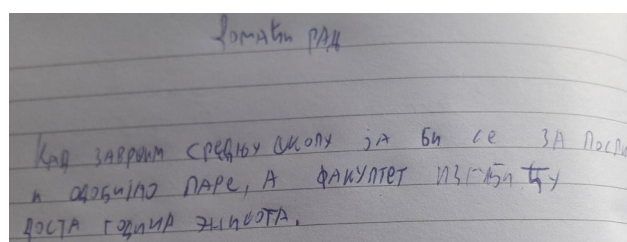 Домаћи рад
Кад заврим средњу школу ја би се за посл
и одобијо паре, а факултет изгуби ћу
доста година живота.